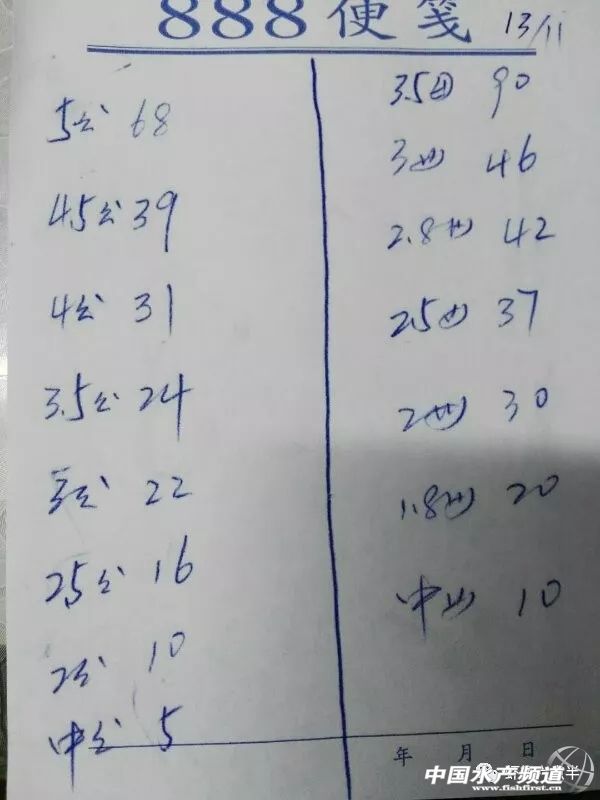 888便笺
13/11
5公 68
4.5公 39
4公 31
3.5公 24
3公 22
2.5公 16
2公 10
中公 5
3.5母 90
3母 46
2.8母 42
2.5母 37
2母 30
1.8母 20
中母 10
年 月 日
中国水产频道
www.fishfirst.cn